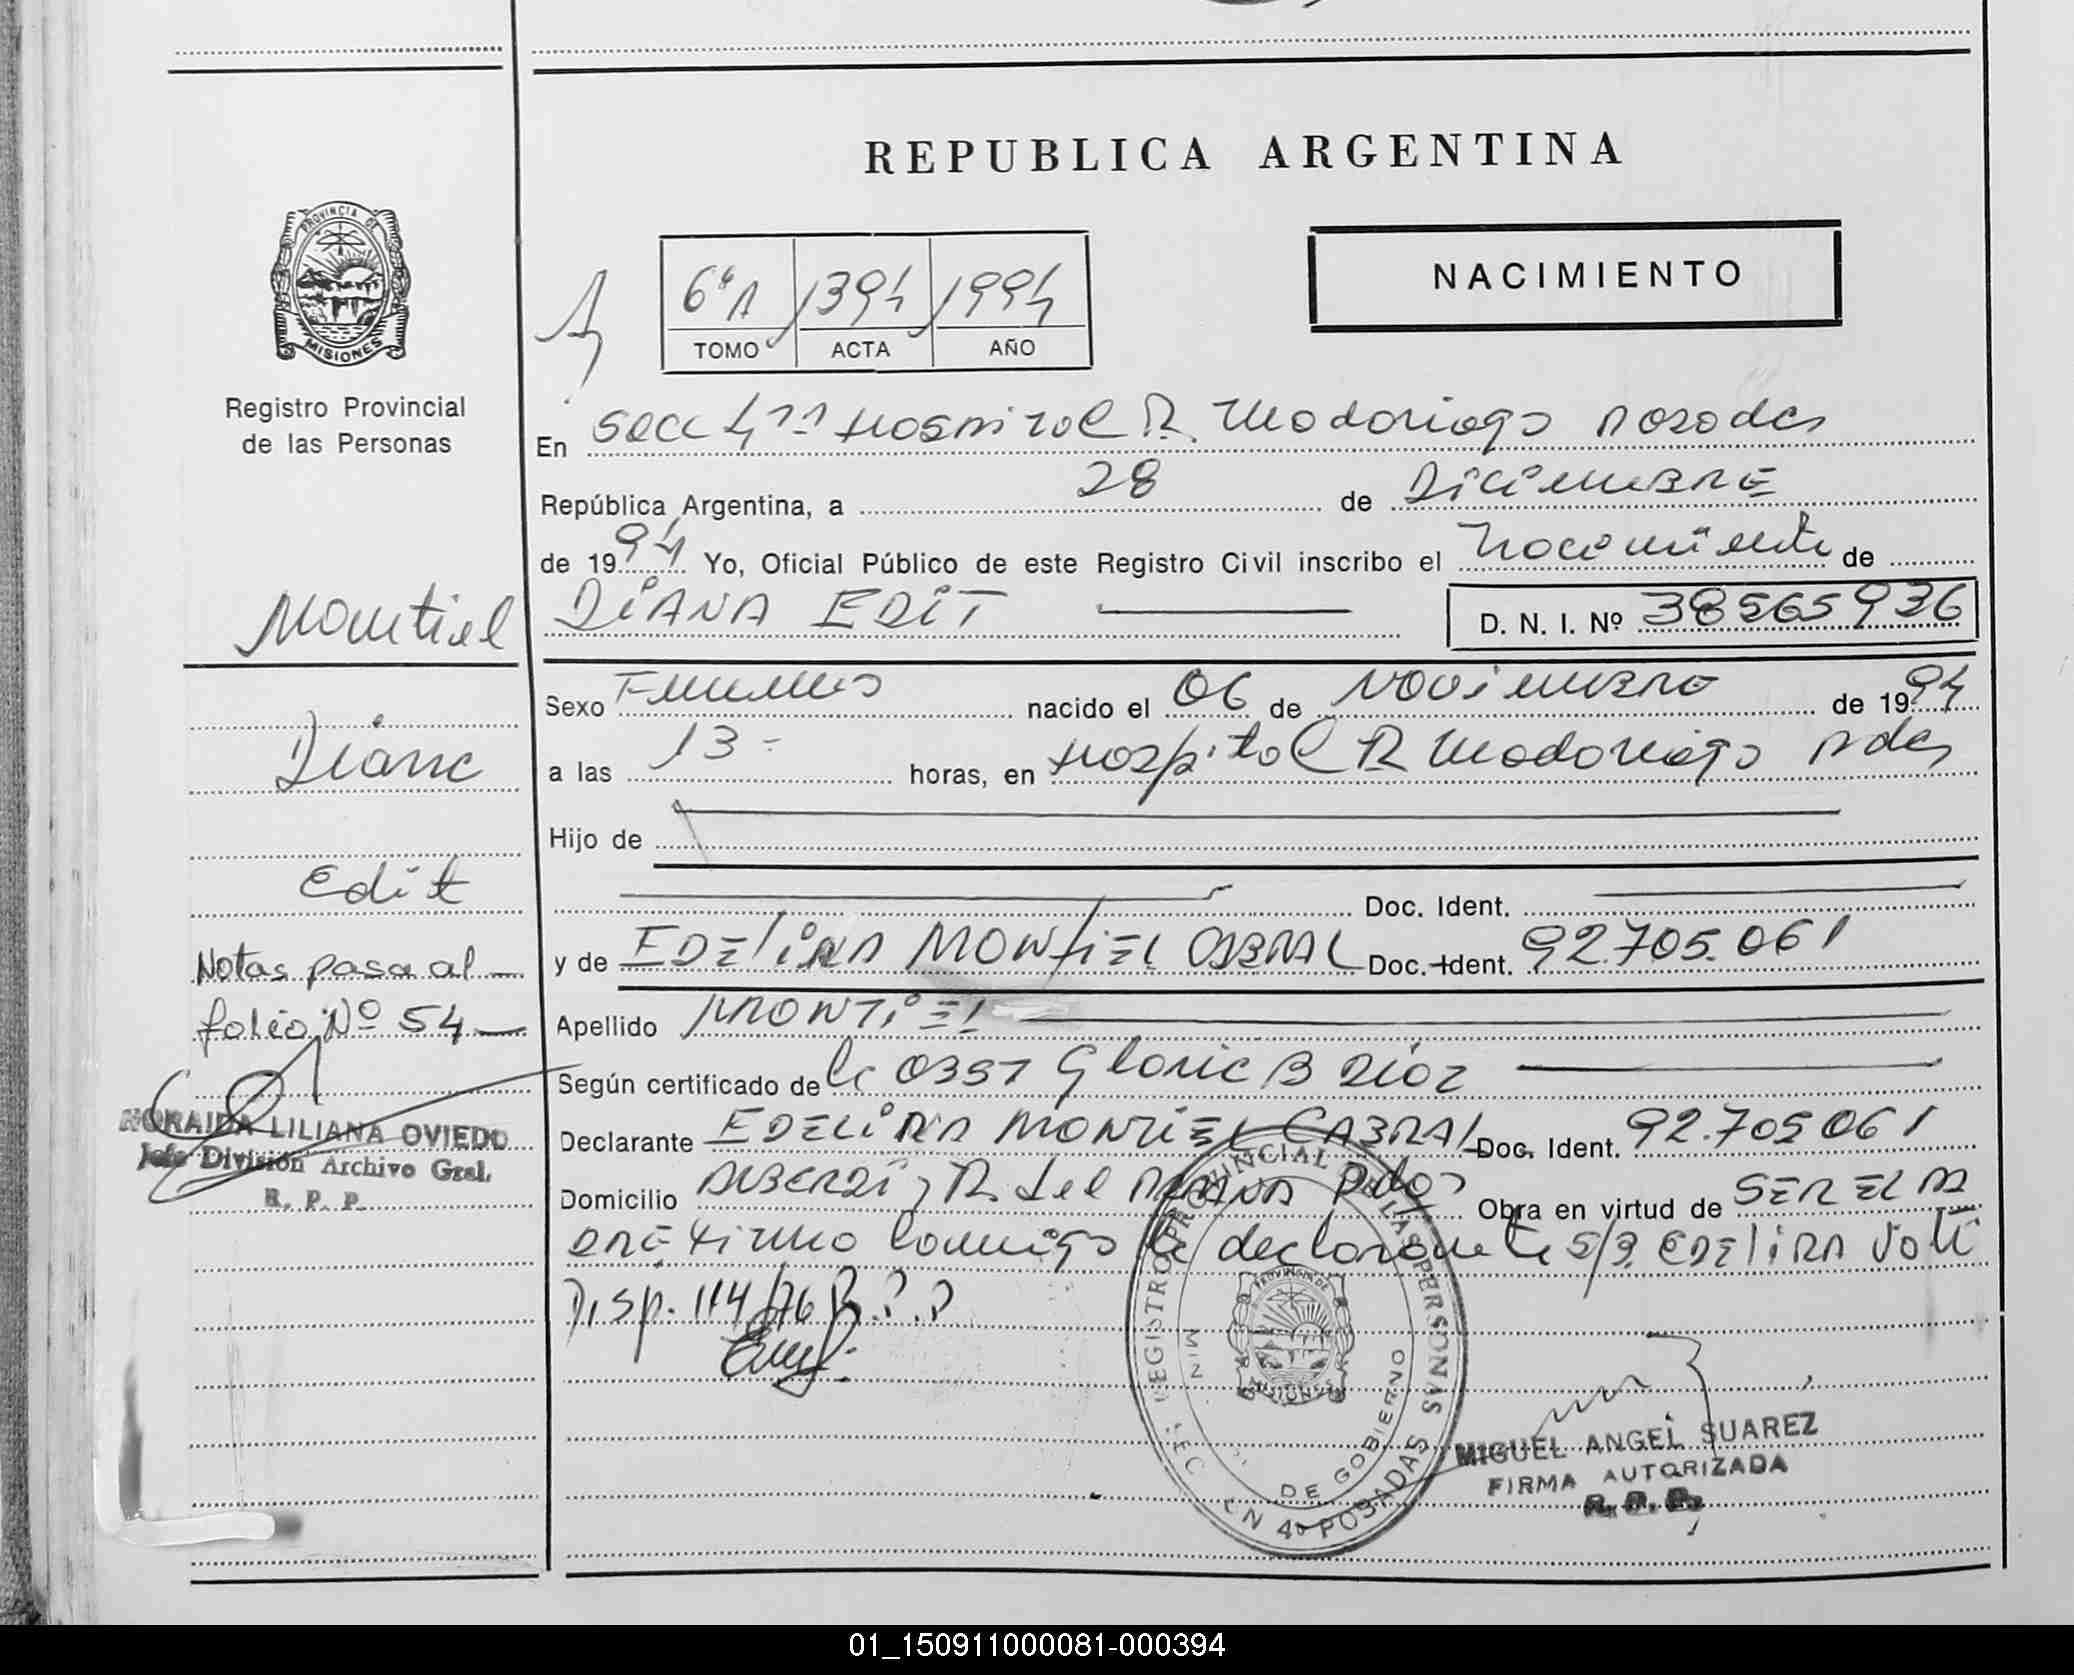 REPUBLICA ARGENTINA
PROVINCIA DE
MISIONES
Registro Provincial
de las Personas
NACIMIENTO
6º A 1394 1994
TOMO ACTA AÑO
En Secc 4ta Hospital R. Madariaga Posadas
República Argentina, a 28 de Diciembre
de 1994 Yo, Oficial Público de este Registro Civil inscribo el Nacimiento de
Montiel
DIANA EDIT
D. N. I. Nº 38565936
Sexo Femenino nacido el 06 de Noviembre de 1994
Diana
a las 13 horas, en Hospital R Madariaga Pdas
Hijo de
Edit
Doc. Ident.
Notas pasa al
y de EDELIRA MONTIEL CABRAL Doc. Ident. 92.705.061
folio Nº 54
Apellido MONTIEL
Según certificado de la Obst Gloria B Diaz
NORAIDA LILIANA OVIEDO
Jefe División Archivo Gral.
R. P. P.
Declarante EDELIRA MONTIEL CABRAL Doc. Ident. 92.705061
Domicilio ALBERDI y R. del PARANA Pdas Obra en virtud de SER EL M
la declarante S/B. EDELIRA Vale
Disp. 114/76 R.P.P
REGISTRO PROVINCIAL DE LAS PERSONAS
MIN DE GOBIERNO
PROVINCIA DE
MISIONES
SECCION 4º POSADAS
MIGUEL ANGEL SUAREZ
FIRMA AUTORIZADA
R. P. P.
01_150911000081-000394